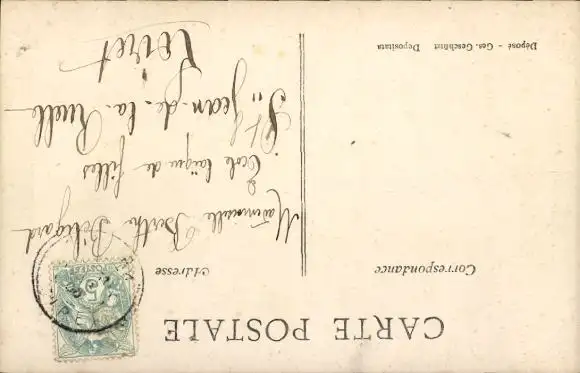 CARTE POSTALE
Correspondance
Adresse
Mademoiselle Berthe
École laïque de filles
St Jean-de-la-Ruelle
Loiret
Déposé - Ges. Geschützt Depositata
POSTES
5